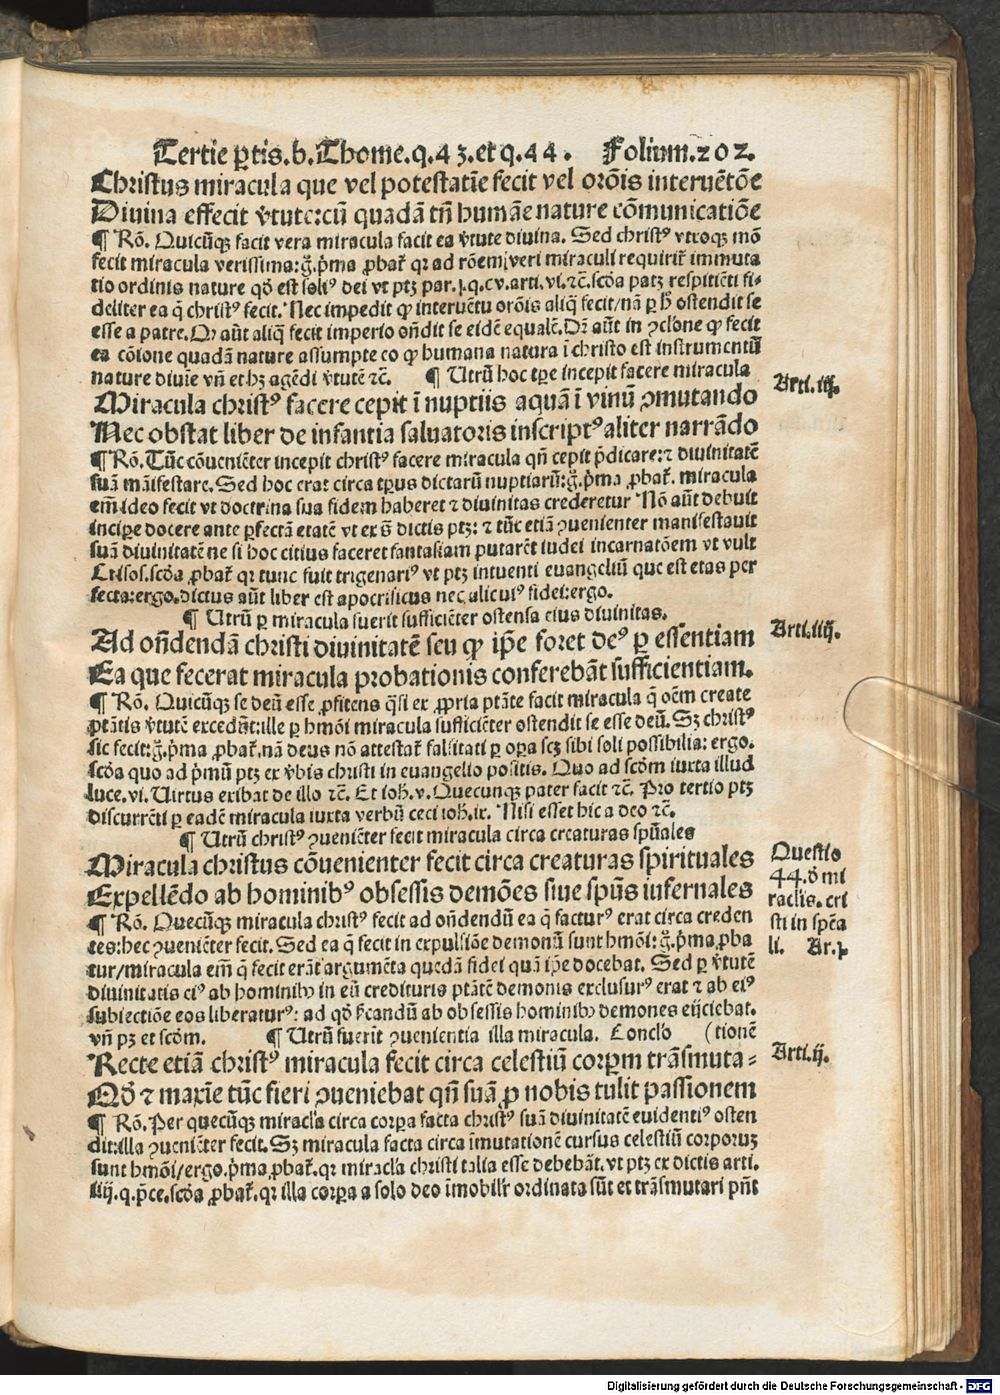 Tertie ꝑtis.b.Thome.q.43.et q.44. Folium.202.
Christus miracula que vel potestatiē fecit vel orōis interuētōe
Diuina effecit v̓tute:cū quadā tñ humāe nature cōmunicatiōe
¶ Rō. Quicūqꝫ facit vera miracula facit ea v̓tute diuina. Sed christꝰ vtroqꝫ mō
fecit miracula verissima:g̊.p̄ma ꝓbat̄ qꝛ ad rōem veri miraculi requirit̄ immuta
tio ordinis nature qd̓ est soliꝰ dei vt ptꝫ par.j.q.cv.arti.vi.⁊c̄.scd̓a patꝫ respiciēti fi-
deliter ea q̄ christꝰ fecit. Nec impedit ꝙ interuētu orōis aliq̄ fecit/nā ꝑ h̓ ostendit se
esse a patre. Qꝛ aūt aliq̄ fecit imperio oñdit se eidē equalē. Dꝛ̄ aūt in ꝯcl̓one ꝙ fecit
ea cōione quadā nature assumpte eo ꝙ humana natura ī christo est instrumentū
nature diuie vñ et hꝫ agēdi v̓tutē ⁊c̄. ¶ Utrū hoc tꝑe incepit facere miracula
Arti.iij.
Miracula christꝰ facere cepit ī nuptiis aquā ī vinū ꝯmutando
Nec obstat liber de infantia saluatoris inscriptꝰ aliter narrādo
¶ Rō. Tūc cōueniēter incepit christꝰ facere miracula qñ cepit p̄dicare:⁊ diuinitatē
suā māifestare. Sed hoc erat circa tꝑus dictarū nuptiarū:g̊.p̄ma ꝓbat̄. miracula
em̄ ideo fecit vt doctrina sua fidem haberet ⁊ diuinitas crederetur Nō aūt debuit
incipere docere ante ꝑfectā etatē vt ex s̄ dictis ptꝫ: ⁊ tūc etiā ꝯuenienter manifestauit
suā diuinitatē ne si hoc citius faceret fantasiam putarēt iudei incarnatōem vt vult
Crisos.scd̓a ꝓbat̄ qꝛ tunc fuit trigenariꝰ vt ptꝫ intuenti euangeliū que est etas per
fecta:ergo.dictus aūt liber est apocrificus nec alicuiꝰ fidei:ergo.
¶ Utrū ꝑ miracula fuerit sufficiēter ostensa eius diuinitas.
Arti.iiij.
Ad oñdendā christi diuinitatē seu ꝙ ip̄e foret deꝰ ꝑ essentiam
Ea que fecerat miracula probationis conferebāt sufficientiam.
¶ Rō. Quicūqꝫ se deū esse ꝓfitens q̄si ex ꝓpria ptāte facit miracula q̄ oēm create
ptātis v̓tutē excedūt:ille ꝑ hmōi miracula sufficiēter ostendit se esse deū. Sꝫ christꝰ
sic fecit:g̊.p̄ma ꝓbat̄.nā deus nō attestat̄ falsitati ꝑ oꝑa scꝫ sibi soli possibilia: ergo.
scd̓a quo ad p̄mū ptꝫ ex v̓bis christi in euangelio positis. Quo ad scd̄m iuxta illud
luce.vi. Uirtus exibat de illo ⁊c̄. Et ioh̄.v. Quecunqꝫ pater facit ⁊c̄. Pro tertio ptꝫ
discurrēti ꝑ eadē miracula iuxta verbū ceci ioh̄.ix. Nisi esset hic a deo ⁊c̄.
¶ Utrū christꝰ ꝯueniēter fecit miracula circa creaturas spūales
Miracula christus cōuenienter fecit circa creaturas spirituales
Expellēdo ab hominibꝰ obsessis demōes siue spūs infernales
Questio
44.d̓ mi
raclis.cri
sti in spēa
li. Ar.j.
¶ Rō. Quecūqꝫ miracula christꝰ fecit ad oñdendū ea q̄ facturꝰ erat circa creden
tes:hec ꝯueniēter fecit. Sed ea q̄ fecit in expulsiōe demonū sunt hmōi:g̊.p̄ma ꝓba
tur/miracula em̄ q̄ fecit erāt argumēta quedā fidei quā ip̄e docebat. Sed ꝑ v̓tutē
diuinitatis eiꝰ ab hominibꝫ in eū credituris ptātē demonis exclusurꝰ erat ⁊ ab eiꝰ
subiectiōe eos liberaturꝰ: ad qd̓ s̓candū ab obsessis hominibꝫ demones eijciebat.
vñ pꝫ et scd̄m. ¶ Utrū fuerit ꝯuenientia illa miracula. Concl̓o (tionē
Arti.ij.
Recte etiā christꝰ miracula fecit circa celestiū corꝑm trāsmuta-
Qd̓ ⁊ maxīe tūc fieri ꝯueniebat qñ suā ꝓ nobis tulit passionem
¶ Rō. Per quecūqꝫ miracl̓a circa corꝑa facta christꝰ suā diuinitatē euidentiꝰ osten
dit:illa ꝯueniēter fecit. Sꝫ miracula facta circa īmutationē cursus celestiū corporuꝫ
sunt hmōi/ergo.p̄ma ꝓbat̄.qꝛ miracl̓a christi talia esse debebāt.vt ptꝫ ex dictis arti.
iiij.q.p̄ce.scd̓a ꝓbat̄.qꝛ illa corꝑa a solo deo īmobilr̄ ordinata sūt et trāsmutari pñt
Digitalisierung gefördert durch die Deutsche Forschungsgemeinschaft - DFG